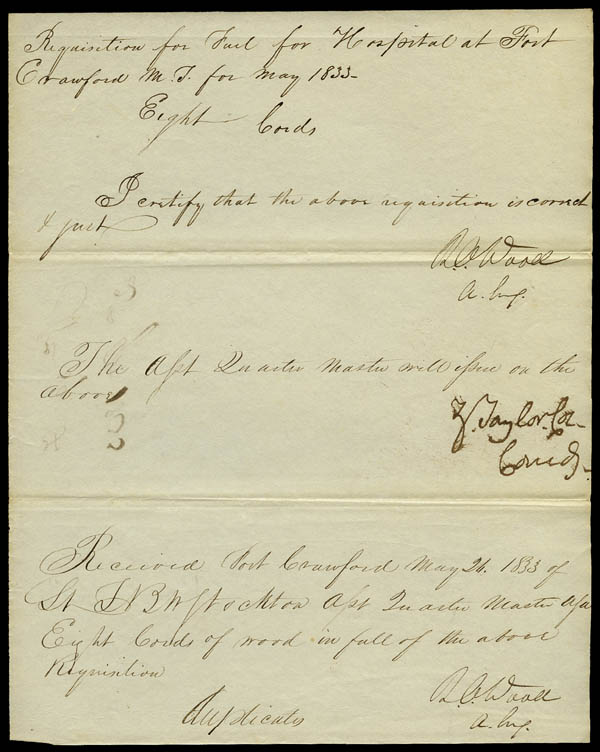 Requisition for Fuel for Hospital at Fort
Crawford M. T. for May 1833-
Eight Cords
I certify that the above requisition is correct
& just
R. C. Wood
A. Surg.
The Asst Quarter Master will issue on the
above
Z. Taylor. Col-
Comdg-
Received Fort Crawford May 26. 1833 of
Lt J N B W Stockton Asst Quarter Master USA
Eight Cords of wood in full of the above
Requisition
R. C. Wood
Duplicates
A. Surg.